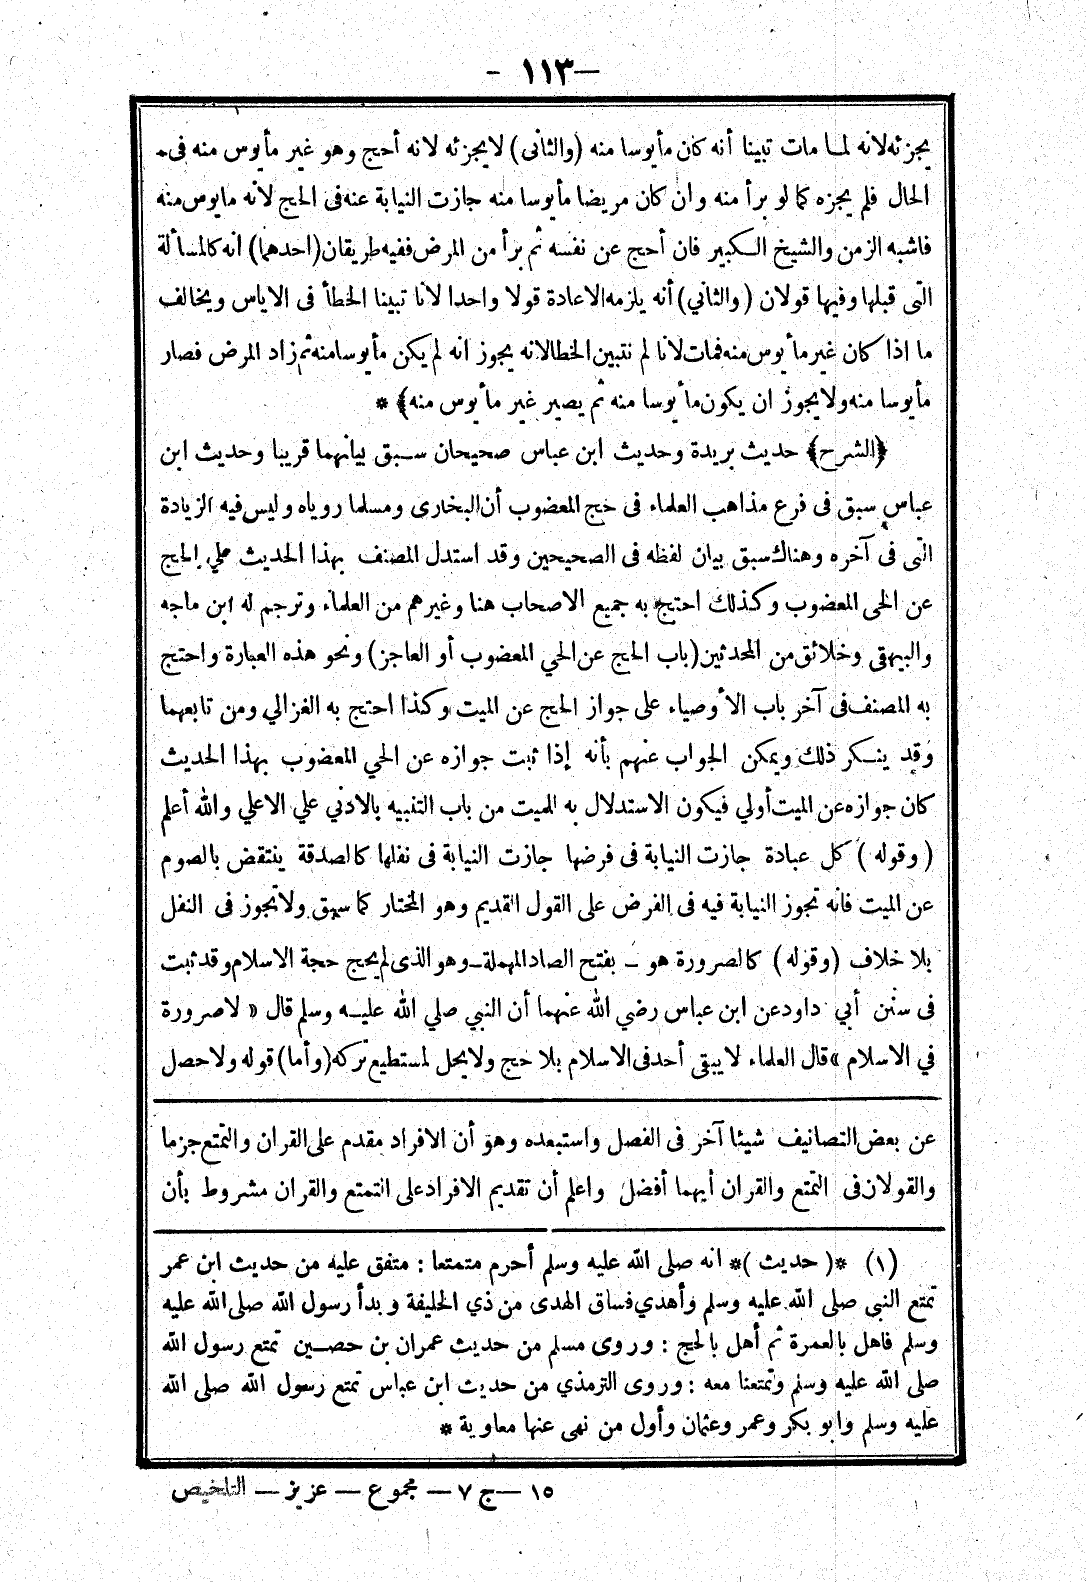 — ١١٣ —
يجزئه لانه لما مات تبينا أنه كان مأيوسا منه (والثانى) لايجزئه لانه أحج وهو غير مأيوس منه فى
الحال فلم يجزه كما لو برأ منه وان كان مريضا مأيوسا منه جازت النيابة عنه فى الحج لانه مايوس منه
فاشبه الزمن والشيخ الكبير فان أحج عن نفسه ثم برأ من المرض ففيه طريقان (احدهما) انه كالمسألة
التى قبلها وفيها قولان (والثاني) أنه يلزمه الاعادة قولا واحدا لانا تبينا الخطأ فى الاياس ويخالف
ما اذا كان غير مأيوس منه فمات لانا لم نتبين الخطا لانه يجوز انه لم يكن مأيوسا منه ثم زاد المرض فصار
مأيوسا منه ولايجوز ان يكون مأيوسا منه ثم يصير غير مأيوس منه﴾ *
﴿الشرح﴾ حديث بريدة وحديث ابن عباس صحيحان سبق بيانهما قريبا وحديث ابن
عباس سبق فى فرع مذاهب العلماء فى حج المعضوب أن البخارى ومسلما روياه وليس فيه الزيادة
التى فى آخره وهناك سبق بيان لفظه فى الصحيحين وقد استدل المصنف بهذا الحديث على الحج
عن الحى المعضوب وكذلك احتج به جميع الاصحاب هنا وغيرهم من العلماء وترجم له ابن ماجه
والبيهقى وخلائق من المحدثين (باب الحج عن الحي المعضوب أو العاجز) ونحو هذه العبارة واحتج
به المصنف فى آخر باب الأوصياء على جواز الحج عن الميت وكذا احتج به الغزالي ومن تابعهما
وقد ينكر ذلك ويمكن الجواب عنهم بأنه إذا ثبت جوازه عن الحي المعضوب بهذا الحديث
كان جوازه عن الميت أولي فيكون الاستدلال به للميت من باب التنبيه بالادني علي الاعلي والله أعلم
(وقوله) كل عبادة جازت النيابة فى فرضها جازت النيابة فى نفلها كالصدقة ينتقض بالصوم
عن الميت فانه تجوز النيابة فيه فى الفرض على القول القديم وهو المختار كما سبق ولاتجوز فى النفل
بلا خلاف (وقوله) كالصرورة هو ـ بفتح الصاد المهملة ـ وهو الذى لم يحج حجة الاسلام وقد ثبت
فى سنن أبي داود عن ابن عباس رضي الله عنهما أن النبي صلي الله عليه وسلم قال « لاصرورة
في الاسلام » قال العلماء لا يبقى أحد فى الاسلام بلا حج ولايحل لمستطيع تركه (وأما) قوله ولاحصل
عن بعض التصانيف شيئا آخر فى الفصل واستبعده وهو أن الافراد مقدم على القران والتمتع جزما
والقولان فى التمتع والقران أيهما أفضل واعلم أن تقديم الافراد على التمتع والقران مشروط بأن
(١) *(حديث)* انه صلى الله عليه وسلم أحرم متمتعا : متفق عليه من حديث ابن عمر
تمتع النبى صلى الله عليه وسلم وأهدي فساق الهدى من ذي الحليفة وبدأ رسول الله صلى الله عليه
وسلم فاهل بالعمرة ثم أهل بالحج : وروى مسلم من حديث عمران بن حصين تمتع رسول الله
صلى الله عليه وسلم وتمتعنا معه : وروى الترمذي من حديث ابن عباس تمتع رسول الله صلى الله
عليه وسلم وابو بكر وعمر وعثمان وأول من نهى عنها معاوية *
١٥ — ج ٧ — مجموع — عزيز — التلخيص